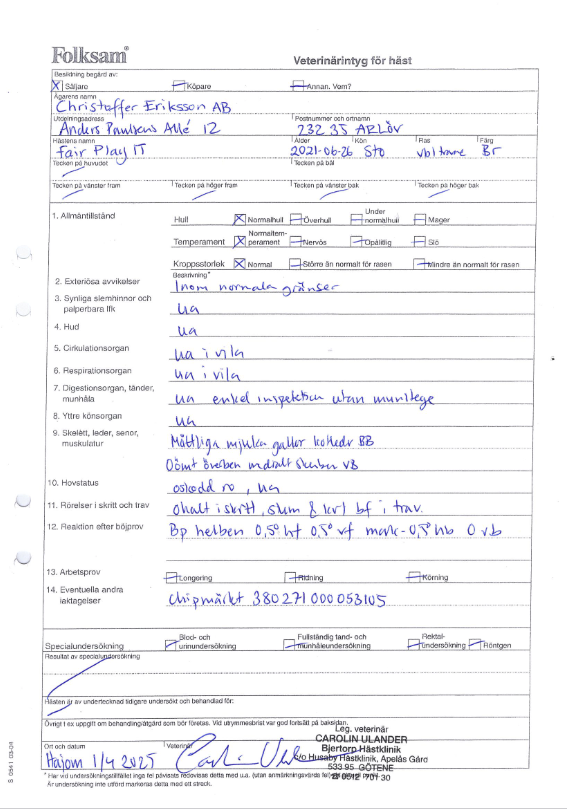 Folksam®
Veterinärintyg för häst
Besiktning begärd av:
X Säljare Köpare Annan. Vem?
Ägarens namn
Christoffer Eriksson AB
Utdelningsadress Postnummer och ortnamn
Anders Paulsens Allé 12 232 35 ARLÖV
Hästens namn Ålder Kön Ras Färg
Fair Play IT 2021-06-26 Sto vbl trav Br
Tecken på huvudet Tecken på bål
Tecken på vänster fram Tecken på höger fram Tecken på vänster bak Tecken på höger bak
1. Allmäntillstånd Hull X Normalhull Överhull Under normalhull Mager
Temperament X Normaltemperament Nervös Opålitlig Slö
Kroppsstorlek X Normal Större än normalt för rasen Mindre än normalt för rasen
Beskrivning*
2. Exteriösa avvikelser Inom normala gränser
3. Synliga slemhinnor och palperbara lfk ua
4. Hud ua
5. Cirkulationsorgan ua i vila
6. Respirationsorgan ua i vila
7. Digestionsorgan, tänder, munhåla ua enkel inspektion utan munstege
8. Yttre könsorgan ua
9. Skelett, leder, senor, muskulatur Måttliga mjuka gallor kotleder BB
Oömt överben medialt skenben VB
10. Hovstatus oskodd ro, ua
11. Rörelser i skritt och trav Ohalt i skritt, bf i trav.
12. Reaktion efter böjprov Bp helben 0,5° hf 0,5° vf mark-0,5° hb 0 vb
13. Arbetsprov Longering Ridning Körning
14. Eventuella andra iakttagelser Chipmärkt 380271000053105
Specialundersökning Blod- och urinundersökning Fullständig tand- och munhåleundersökning Rektalundersökning Röntgen
Resultat av specialundersökning
Hästen är av undertecknad tidigare undersökt och behandlad för:
Övrigt t ex uppgift om behandling/åtgärd som bör företas. Vid utrymmesbrist var god fortsätt på baksidan.
Leg. veterinär
CAROLIN ULANDER
Bjertorp Hästklinik
c/o Husaby Hästklinik, Apelås Gård
533 95 GÖTENE
Ort och datum Veterinär
Hajom 1/4 2025
* Har vid undersökningstillfället inga fel påvisats redovisas detta med u.a. (utan anmärkningsvärda fel
Är undersökning inte utförd markeras detta med ett streck.
S 0541 03-04